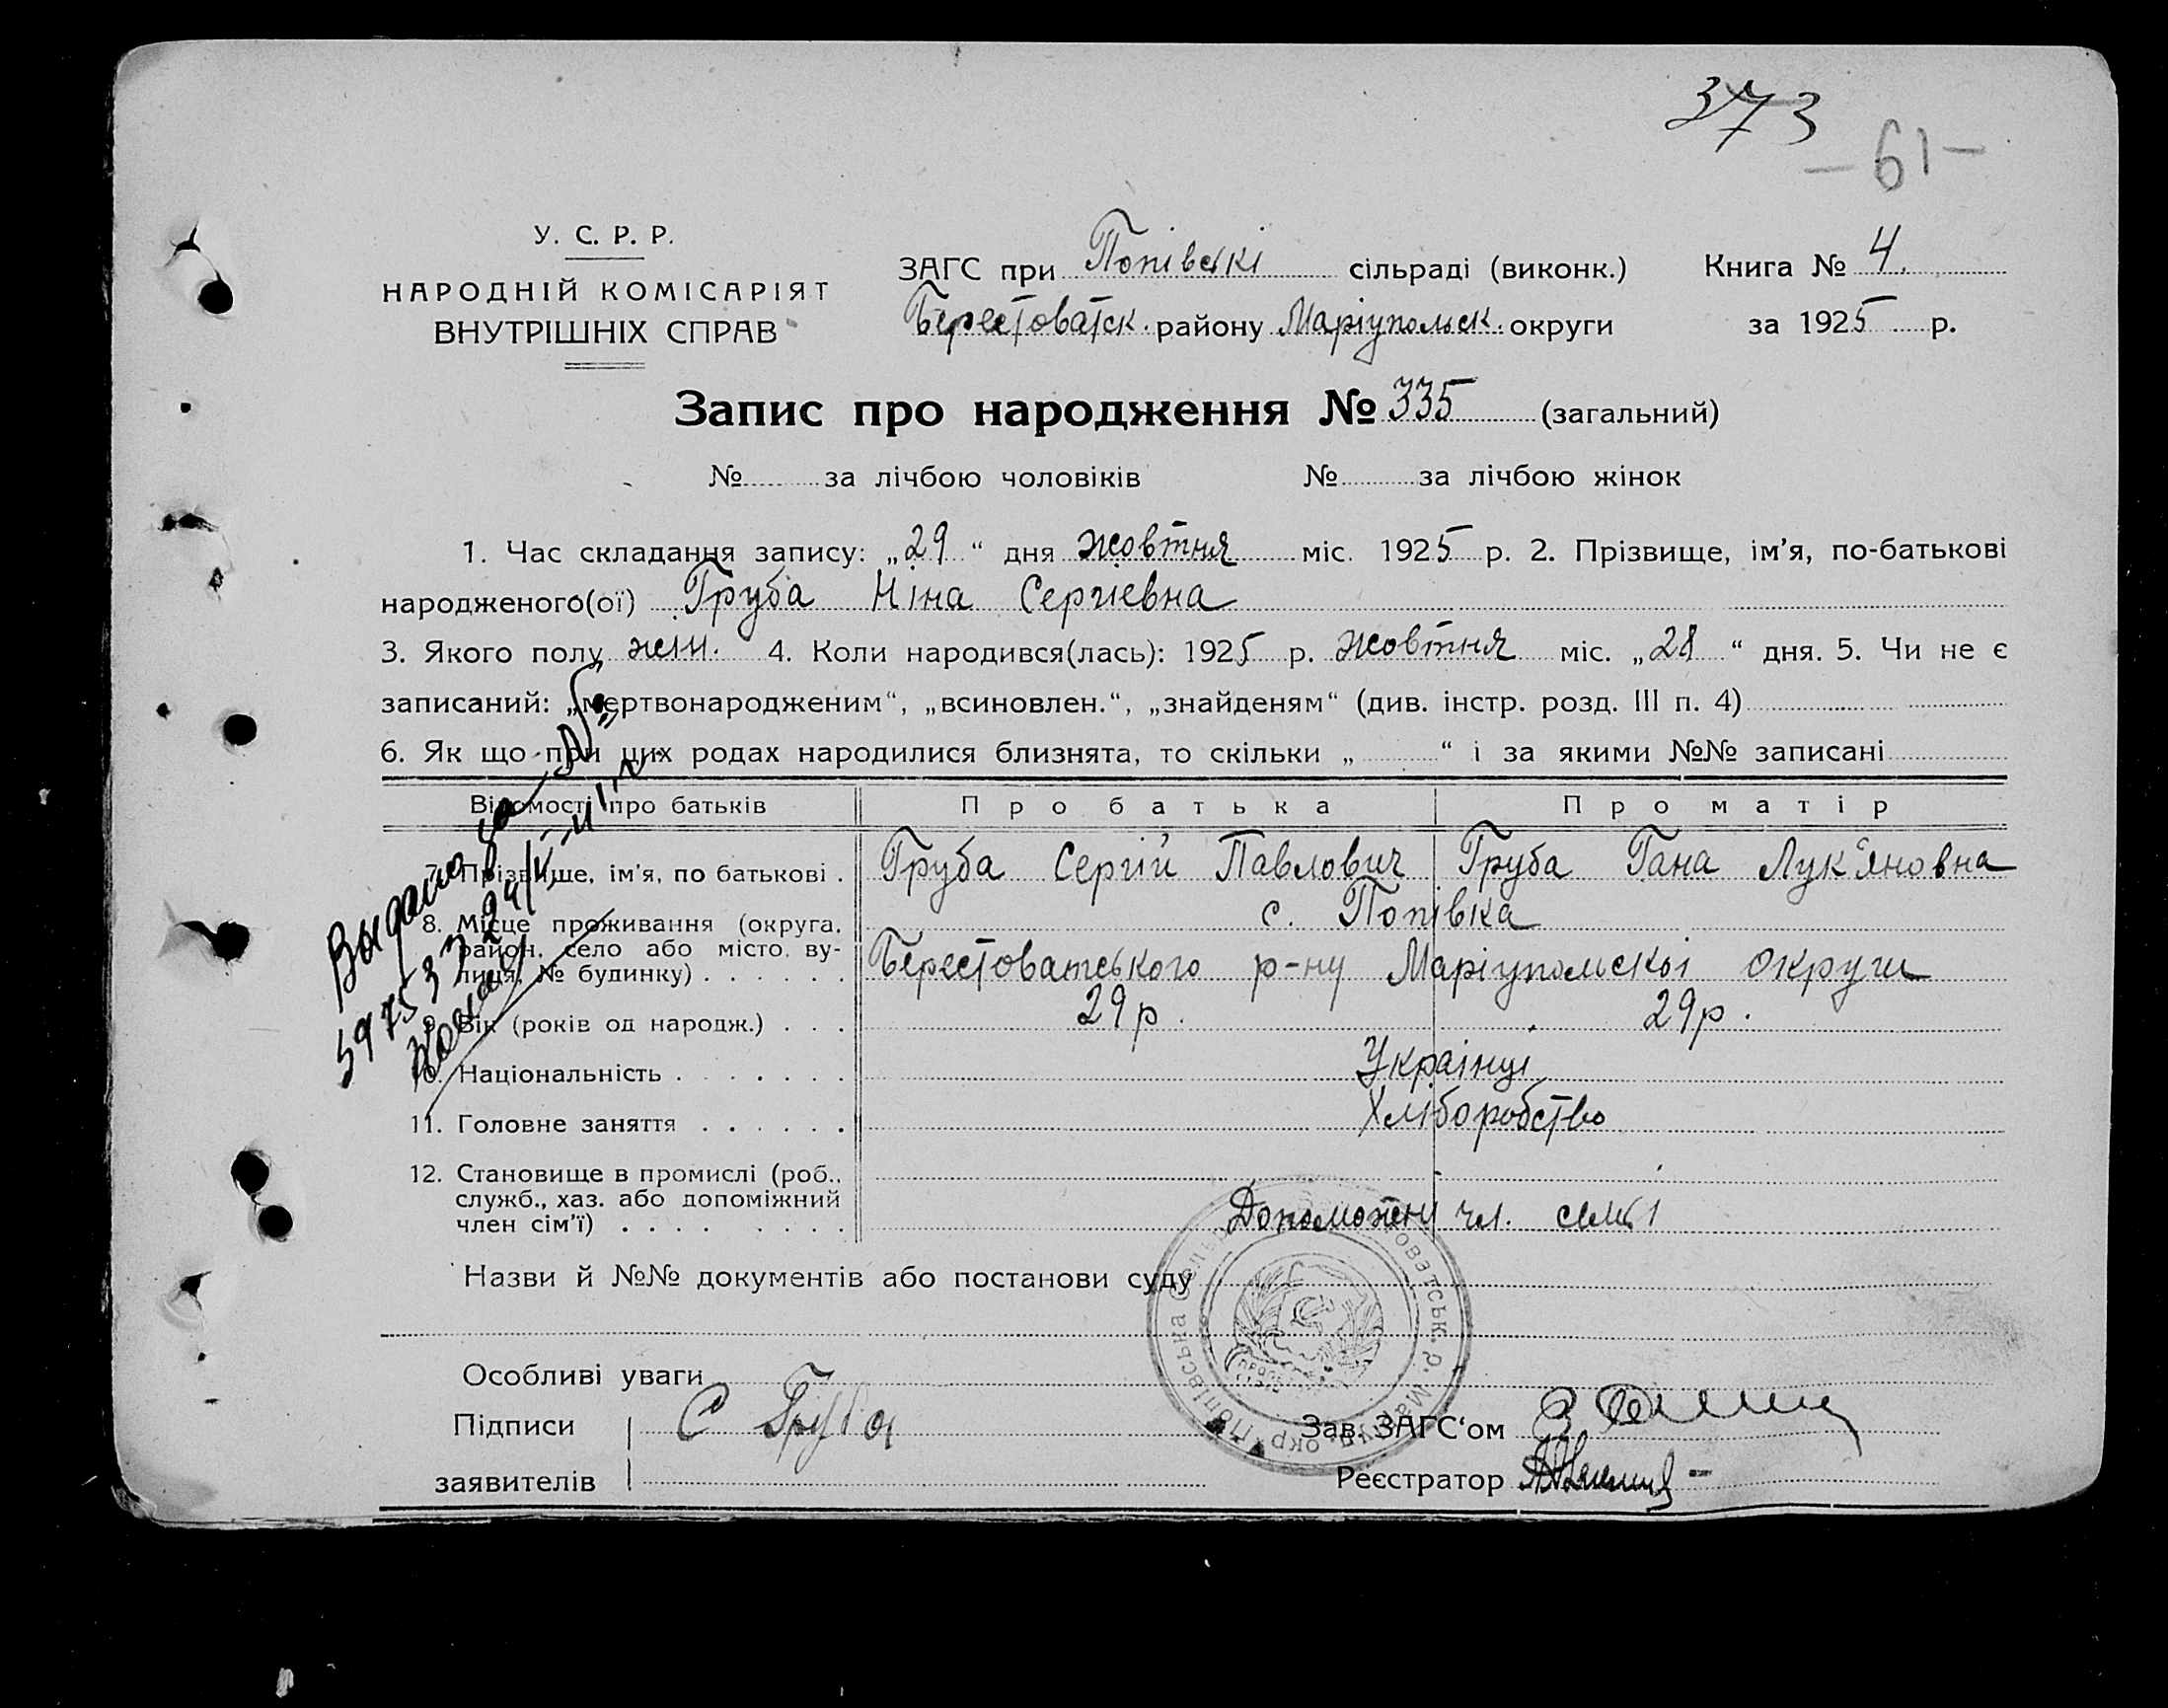 373
– 61 –
У. С. Р. Р.
НАРОДНІЙ КОМІСАРІЯТ
ВНУТРІШНІХ СПРАВ
ЗАГС при Попівські сільраді (виконк.) Книга № 4.
Берестоватск. району Маріупольск. округи за 1925 р.
Запис про народження № 335 (загальний)
№ за лічбою чоловіків № за лічбою жінок
1. Час складання запису: „29“ дня жовтня міс. 1925 р. 2. Прізвище, ім’я, по-батькові
народженого(ої) Груба Ніна Сергієвна
3. Якого полу жін. 4. Коли народився(лась): 1925 р. жовтня міс. „28“ дня. 5. Чи не є
записаний: „мертвонародженим“, „всиновлен.“, „знайденям“ (див. інстр. розд. III п. 4)
6. Як що при цих родах народилися близнята, то скільки „ “ і за якими №№ записані
Відомості про батьків Про батька Про матір
7. Прізвище, ім’я, по батькові . Груба Сергій Павлович Груба Гана Лук'яновна
8. Місце проживання (округа, с. Попівка
район, село або місто, ву-
лиця, № будинку) . . . . . . Берестоватського р-ну Маріупольскоі округи
9. Вік (років од народж.) . . . 29 р. 29 р.
10. Національність . . . . . . . Українці
11. Головне заняття . . . . . . Хліборобство
12. Становище в промислі (роб.,
служб., хаз. або допоміжний
член сім’ї) . . . . . . . . Допоможні чл. семьі
Выдано св-во
Назви й №№ документів або постанови суду
Особливі уваги
Підписи С Груба Зав. ЗАГС‘ом
заявителів Реєстратор